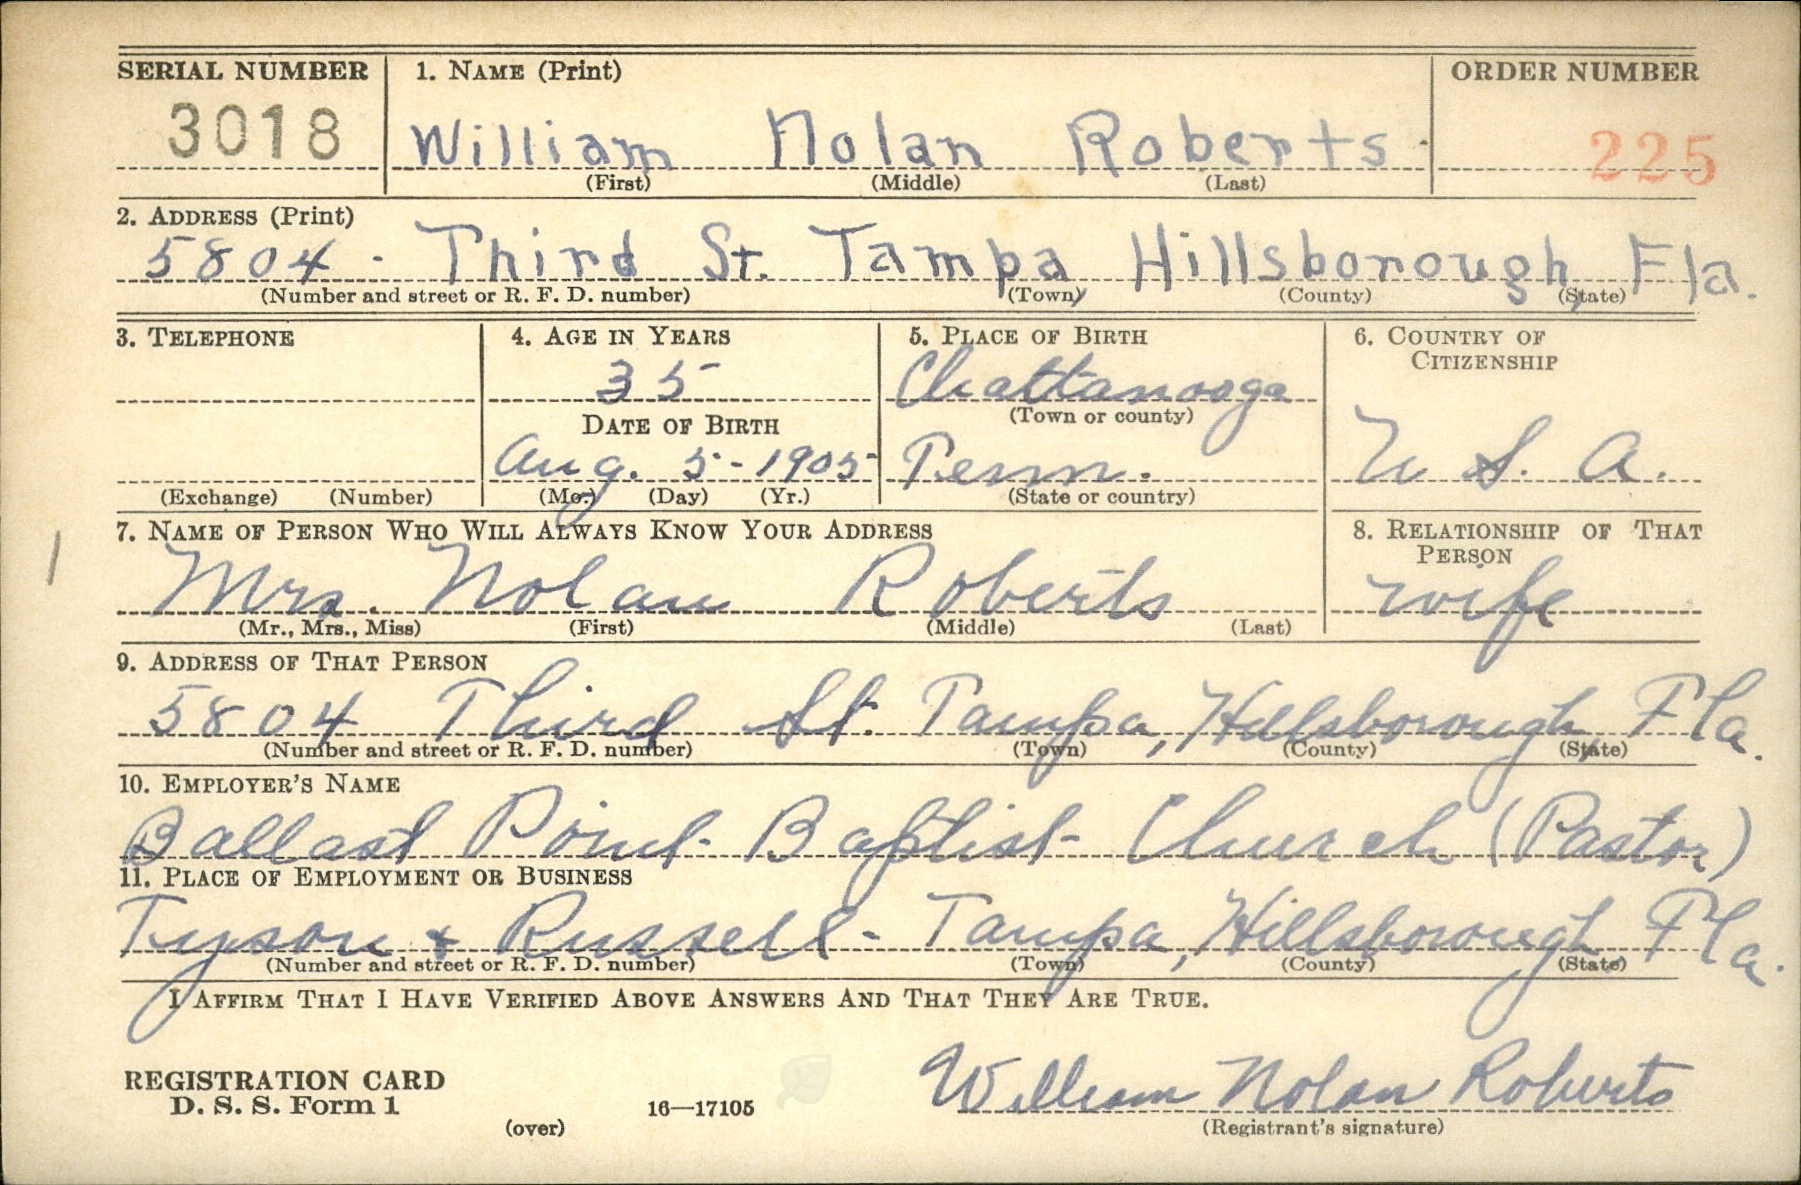 SERIAL NUMBER 1. NAME (Print) ORDER NUMBER
3018 William Nolan Roberts 225
(First) (Middle) (Last)
2. ADDRESS (Print)
5804 - Third St. Tampa Hillsborough, Fla.
(Number and street or R. F. D. number) (Town) (County) (State)
3. TELEPHONE 4. AGE IN YEARS 5. PLACE OF BIRTH 6. COUNTRY OF
CITIZENSHIP
35 Chattanooga
(Town or county)
DATE OF BIRTH
Aug. 5-1905 Tenn. U S. A.
(Exchange) (Number) (Mo.) (Day) (Yr.) (State or country)
7. NAME OF PERSON WHO WILL ALWAYS KNOW YOUR ADDRESS 8. RELATIONSHIP OF THAT
PERSON
Mrs. Nolan Roberts wife
(Mr., Mrs., Miss) (First) (Middle) (Last)
9. ADDRESS OF THAT PERSON
5804 Third St. Tampa, Hillsborough, Fla.
(Number and street or R. F. D. number) (Town) (County) (State)
10. EMPLOYER'S NAME
Ballast Point Baptist Church (Pastor)
11. PLACE OF EMPLOYMENT OR BUSINESS
Tyson + Russell - Tampa, Hillsborough Fla.
(Number and street or R. F. D. number) (Town) (County) (State)
I AFFIRM THAT I HAVE VERIFIED ABOVE ANSWERS AND THAT THEY ARE TRUE.
REGISTRATION CARD
D. S. S. Form 1 16—17105 William Nolan Roberts
(over) (Registrant's signature)